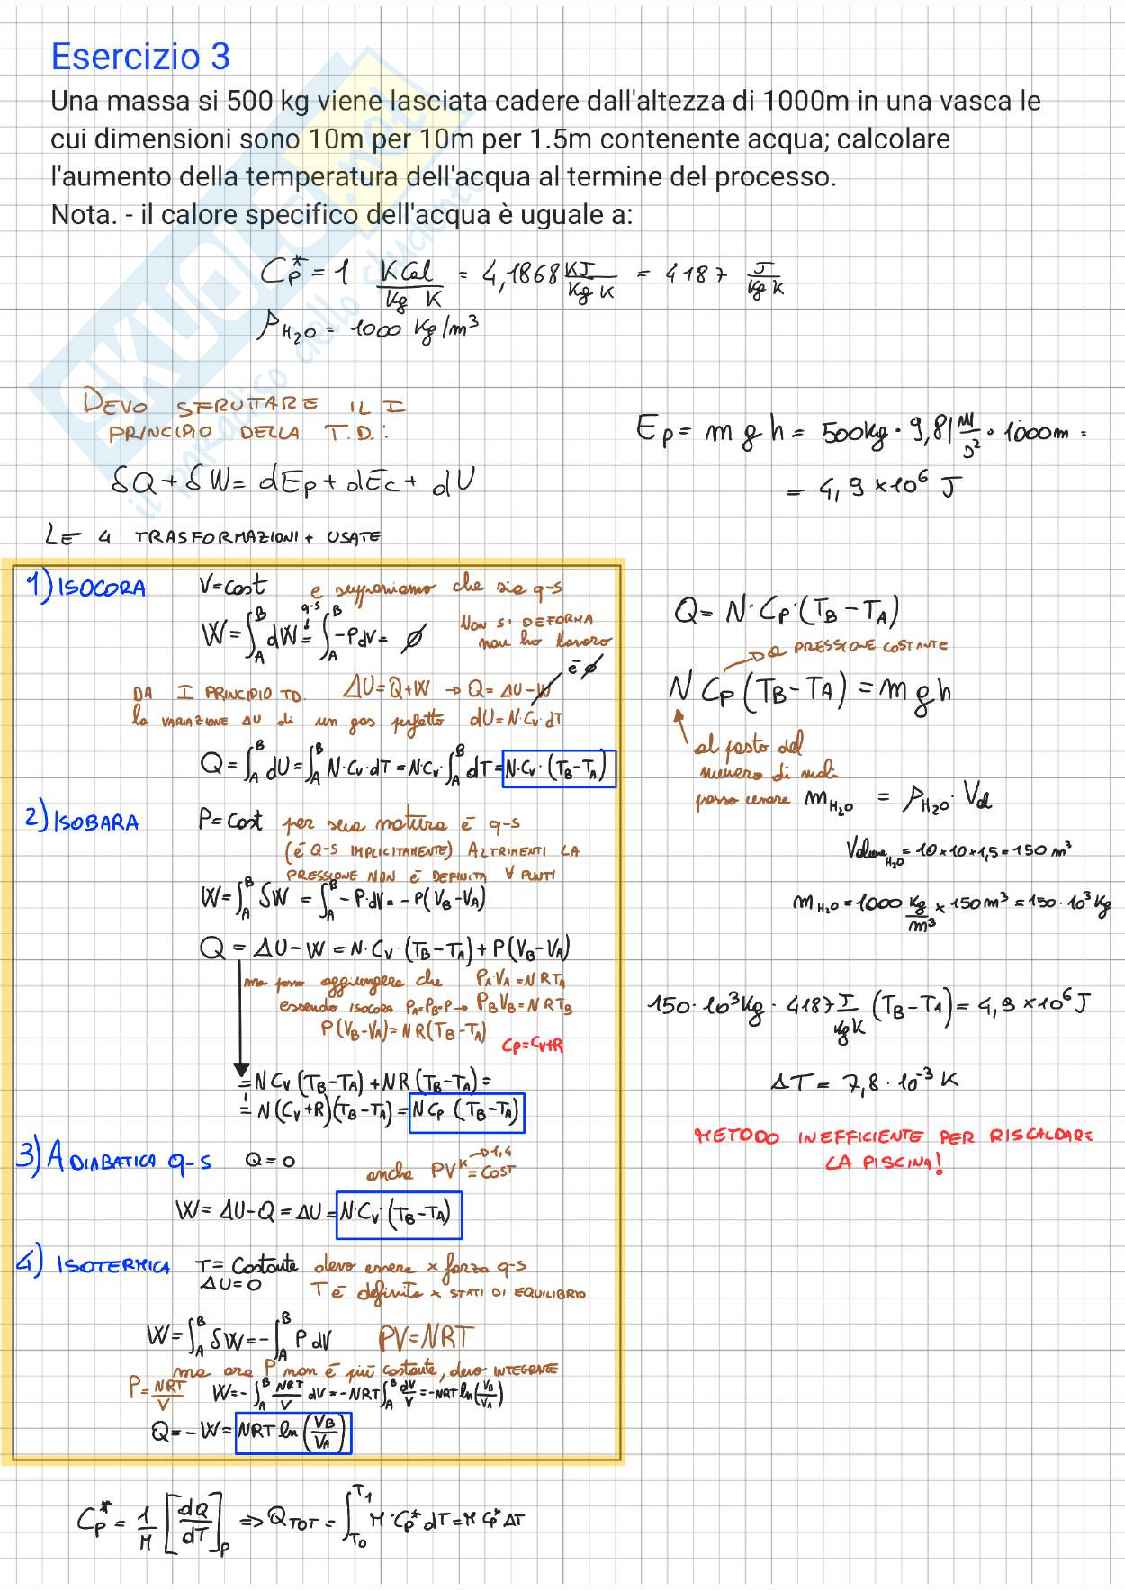 Esercizio 3
Una massa si 500 kg viene lasciata cadere dall'altezza di 1000m in una vasca le
cui dimensioni sono 10m per 10m per 1.5m contenente acqua; calcolare
l'aumento della temperatura dell'acqua al termine del processo.
Nota. - il calore specifico dell'acqua è uguale a:
Cp* = 1 KCal/Kg K = 4,1868 KJ/Kg K = 4187 J/Kg K
ρH2O = 1000 Kg/m³
DEVO SFRUTTARE IL I
PRINCIPIO DELLA T.D.:
δQ + δW = dEp + dEc + dU
LE 4 TRASFORMAZIONI + USATE
1) ISOCORA V=Cost e supponiamo che sia q-s
W = ∫_A^B dW =(q-s) ∫_A^B -PdV = ∅ NON SI DEFORMA
non ho lavoro
DA I PRINCIPIO TD. ΔU=Q+W → Q= ΔU-W è ∅
la VARIAZIONE ΔU di un gas perfetto dU=N·Cv·dT
Q = ∫_A^B dU = ∫_A^B N·Cv·dT = N·Cv ∫_A^B dT = N·Cv·(TB-TA)
2) ISOBARA P=Cost per sua natura è q-s
(è Q-S IMPLICITAMENTE) ALTRIMENTI LA
PRESSIONE NON È DEFINITA ∀ PUNTI
W = ∫_A^B δW = ∫_A^B -P·dV = -P(VB-VA)
Q = ΔU-W = N·Cv (TB-TA) + P(VB-VA)
ma posso aggiungere che PA·VA=NRTA
essendo ISOCORA PA=PB=P → PBVB=NRTB
P(VB-VA)=NR(TB-TA) Cp=Cv+R
= NCv (TB-TA) + NR (TB-TA) =
= N(Cv+R)(TB-TA) = NCp (TB-TA)
3) ADIABATICA q-s Q=0 anche PV^K=COST →1,4
W = ΔU-Q = ΔU = N·Cv (TB-TA)
4) ISOTERMICA T=Costante devo essere x forza q-s
ΔU=0 T è definita x STATI DI EQUILIBRIO
W = ∫_A^B δW = -∫_A^B P dV PV=NRT
ma ora P non è più costante, devo INTEGRARE
P=NRT/V W = -∫_A^B NRT/V dV = -NRT ∫_A^B dV/V = -NRT ln(VB/VA)
Q = -W = NRT ln(VB/VA)
Cp* = 1/M [dQ/dT]p ⇒ QTOT = ∫_T0^T1 M·Cp* dT = M Cp* ΔT
Ep = m g h = 500kg · 9,81 m/s² · 1000m =
= 4,9 ×10⁶ J
Q = N·Cp·(TB-TA)
→ a PRESSIONE COSTANTE
N Cp (TB-TA) = m g h
al posto del
numero di moli
posso usare mH2O = ρH2O · Vol
VolumeH2O = 10×10×1,5 = 150 m³
mH2O = 1000 Kg/m³ × 150 m³ = 150·10³ Kg
150·10³ Kg · 4187 J/KgK (TB-TA) = 4,9 ×10⁶ J
ΔT = 7,8 · 10⁻³ K
METODO INEFFICIENTE PER RISCALDARE
LA PISCINA!
SKUOLA.net
il paradiso dello studente